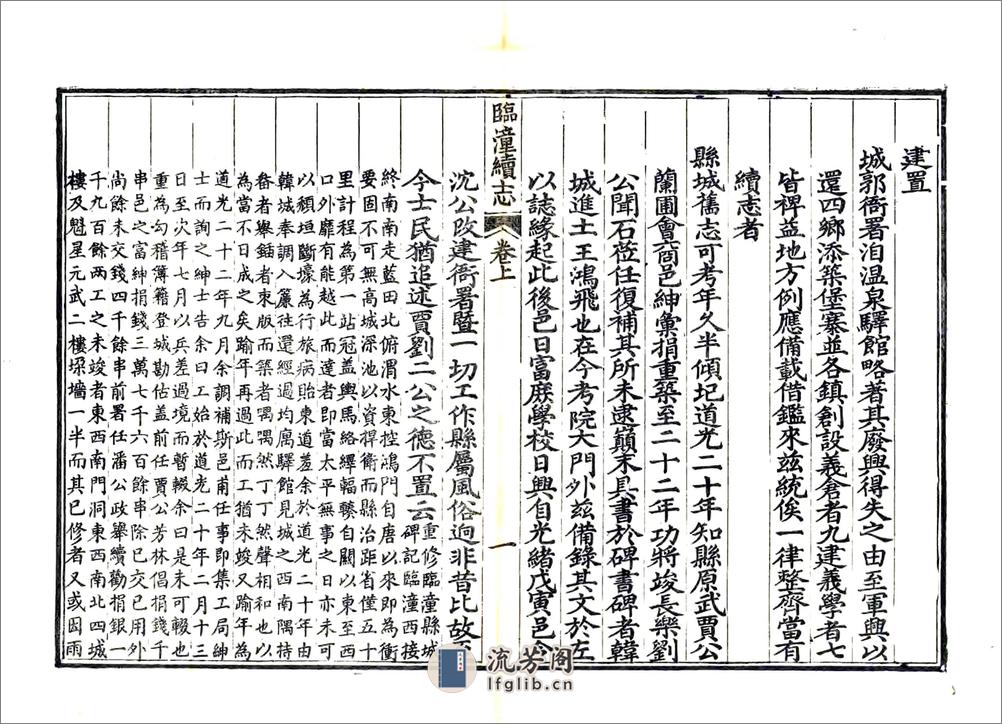 建置
城郭衙署洎温泉驛館略著其廢興得失之由至軍興以
還四鄉添築堡寨並各鎮創設義倉者九建義學者七
皆裨益地方例應備載借鑑來兹統俟一律整齊當有
續志者
縣城舊志可考年久半傾圮道光二十年知縣原武賈公
蘭圃會商邑紳彙捐重築至二十二年功將竣長樂劉
公聞石莅任復補其所未逮巔末具書於碑書碑者韓
城進士王鴻飛也在今考院大門外兹備錄其文於左
以誌緣起此後邑日富庶學校日興自光緒戊寅邑公
沈公改建衙署暨一切工作縣屬風俗逈非昔比故至
今士民猶追述賈劉二公之德不置云
重修臨潼縣城
碑記臨潼西接
終南南走藍田北俯渭水東控鴻門自唐以來即為衝
要固不可無高城深池以資捍衛而縣治距省僅五十
里計程為第一站冠蓋輿馬絡繹輻輳自關以東西至
口外靡有能越此而達者即當太平無事之日亦未可
以頹垣斷壕為行旅病貽東道羞余於道光二十年由
韓城奉調入簾往還經過均寓驛館見城之西南隅持
畚者舉鍤者束版而築者喁喁然丁丁然聲相和也以
為當不日成之矣踰年再過此而工猶未竣又踰年為
道光二十二年九月余調補斯邑甫任事即集工局紳
士而詢之紳士告余曰工始於道光二十年二月十三
日至次年七月以兵差過境而暫輟余曰是未可輟也
重為勾稽簿籍登城勘估蓋前任賈公芳林倡捐錢千
串邑之富紳捐錢三萬七千六百餘串除已交已用外
尚餘未交錢四千餘串前署任潘公政舉續勸捐銀一
千九百餘兩工之未竣者東西南門洞東西南北四城
樓及魁星元武二樓垛墻一半而其已修者又或因雨
臨潼續志
卷上
一
流芳阁
lfglib.cn